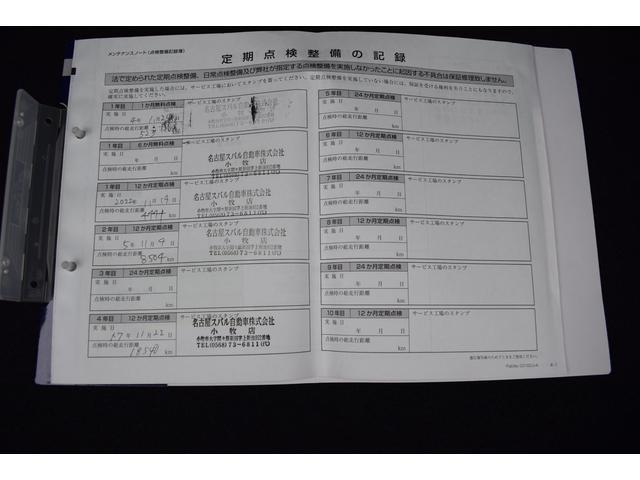 メンテナンスノート(点検整備記録簿)
定期点検整備の記録
法で定められた定期点検整備、日常点検整備及び弊社が指定する点検整備を実施しなかったことに起因する不具合は保証修理致しません。
点検整備を実施した場合には、サービス工場においてスタンプを貰ってください。定期点検整備を実施していない場合には、保証を受ける権利を失うことにもなりますので、
確実に実施してください。
1年目 1か月無料点検 サービス工場のスタンプ
実施日
点検時の総走行距離
km
1年目 6か月無料点検 サービス工場のスタンプ
実施日
年 月 日
点検時の総走行距離
km
名古屋スバル自動車株式会社
小牧店
1年目 12か月定期点検 サービス工場のスタンプ
実施日
2022年 11月 19日
点検時の総走行距離
km
名古屋スバル自動車株式会社
小牧店
2年目 12か月定期点検 サービス工場のスタンプ
実施日
5年 11月 9日
点検時の総走行距離
8504 km
名古屋スバル自動車株式会社
小牧店
3年目 24か月定期点検 サービス工場のスタンプ
実施日
年 月 日
点検時の総走行距離
km
4年目 12か月定期点検 サービス工場のスタンプ
実施日
年 11月 22日
点検時の総走行距離
km
名古屋スバル自動車株式会社
小牧店
TEL(0568)73-6811㈹
5年目 24か月定期点検 サービス工場のスタンプ
実施日
年 月 日
点検時の総走行距離
km
6年目 12か月定期点検 サービス工場のスタンプ
実施日
年 月 日
点検時の総走行距離
km
7年目 24か月定期点検 サービス工場のスタンプ
実施日
年 月 日
点検時の総走行距離
km
8年目 12か月定期点検 サービス工場のスタンプ
実施日
年 月 日
点検時の総走行距離
km
9年目 24か月定期点検 サービス工場のスタンプ
実施日
年 月 日
点検時の総走行距離
km
10年目 12か月定期点検 サービス工場のスタンプ
実施日
年 月 日
点検時の総走行距離
km